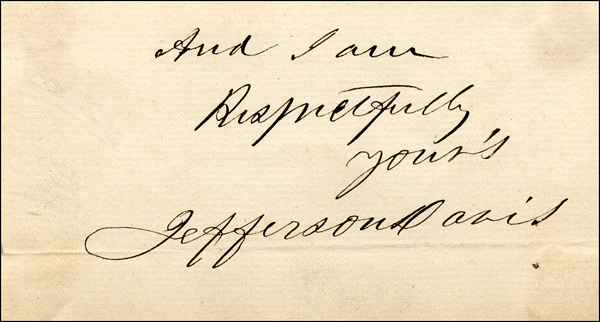 And I am
Respectfully
your's
Jefferson Davis